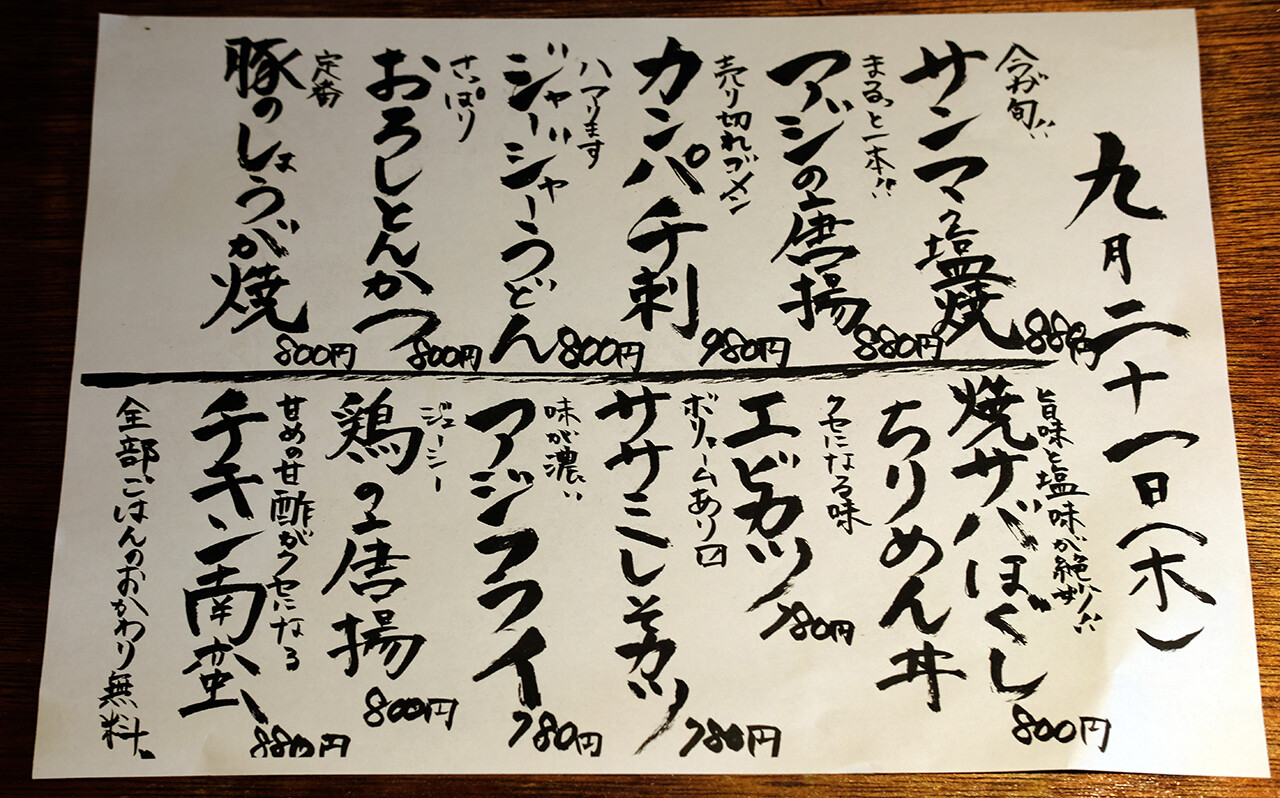 九月二十一日(木)
今が旬!!
サンマの塩焼
880円
まるっと一本!!
アジの唐揚
880円
売り切れゴメン
カンパチ刺
980円
ハマります
ジャージャーうどん
800円
さっぱり
おろしとんかつ
800円
定番
豚のしょうが焼
800円
旨味と塩味が絶妙!!
焼サバほぐし
ちりめん丼
800円
クセになる味
エビカツ
780円
ボリュームあり〼
ササミしそカツ
780円
味が濃い
アジフライ
780円
ジューシー
鶏の唐揚
800円
甘めの甘酢がクセになる
チキン南蛮、
880円
全部、ごはんのおかわり無料。